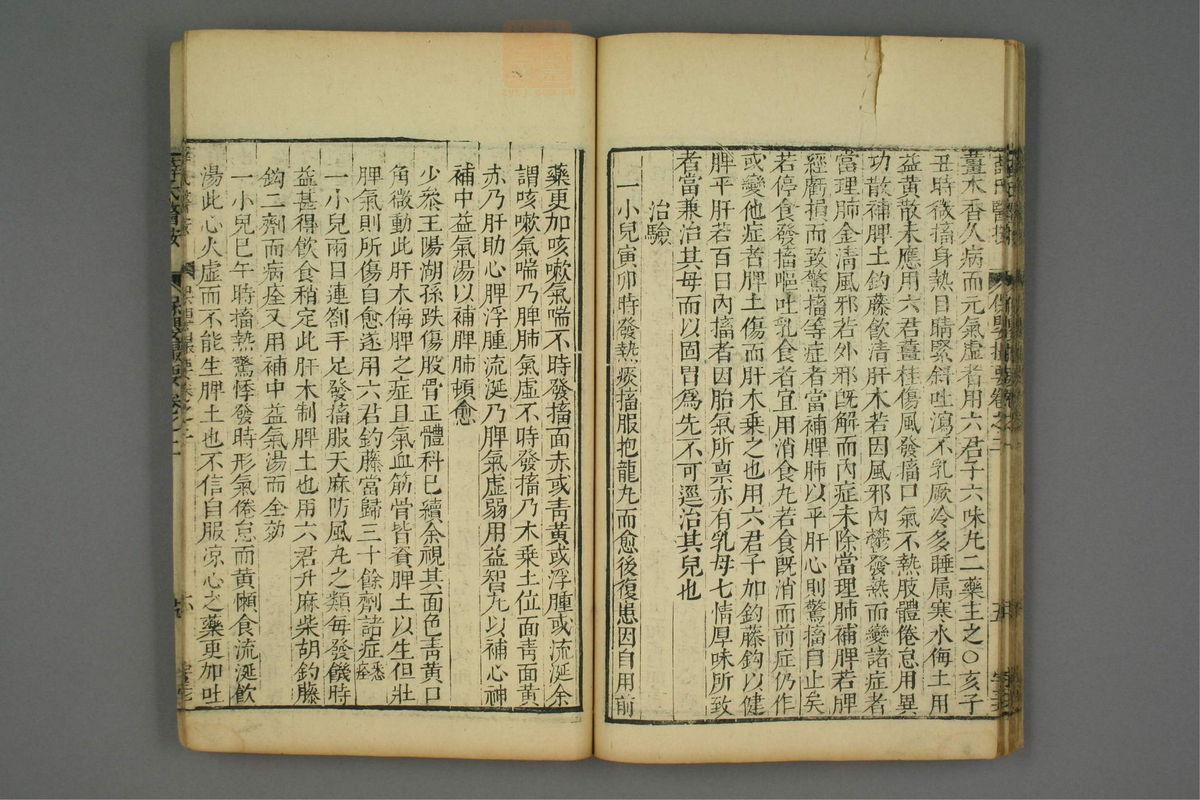 薑木香久病而元氣虛者用六君子六味丸二藥主之○亥子
丑時微搐身熱目睛緊斜吐瀉不乳厥冷多睡属寒水侮土用
益黃散未應用六君薑桂傷風發搐口氣不熱肢體倦怠用異
功散補脾土釣藤飲清肝木若因風邪內鬱發熱而變諸症者
當理肺金清風邪若外邪旣解而內症未除當理肺補脾若脾
經虧損而致驚搐等症者當補脾肺以平肝心則驚搐自止矣
若停食發搐嘔吐乳食者宜用消食丸若食旣消而前症仍作
或變他症者脾土傷而肝木乗之也用六君子加釣藤鈎以健
脾平肝若百日內搐者因胎氣所禀亦有乳母七情厚味所致
者當兼治其母而以固胃爲先不可逕治其兒也
治驗
一小兒寅卯時發熱痰搐服抱龍丸而愈後復患因自用前
藥更加咳嗽氣喘不時發搐面赤或靑黃或浮腫或流涎余
謂咳嗽氣喘乃脾肺氣虛不時發搐乃木乗土位面靑面黃
赤乃肝助心脾浮腫流涎乃脾氣虛弱用益智丸以補心神
補中益氣湯以補脾肺頓愈
少參王陽湖孫跌傷股骨正體科已續余視其面色靑黃口
角微動此肝木侮脾之症且氣血筋骨皆資脾土以生但壯
脾氣則所傷自愈遂用六君釣藤當歸三十餘劑諸症悉痊
一小兒兩日連劄手足發搐服天麻防風丸之類每發饑時
益甚得飲食稍定此肝木制脾土也用六君升麻柴胡釣藤
鈎二劑而病痊又用補中益氣湯而全効
一小兒巳午時搐熱驚悸發時形氣倦怠面黃懶食流涎飲
湯此心火虛而不能生脾土也不信自服凉心之藥更加吐